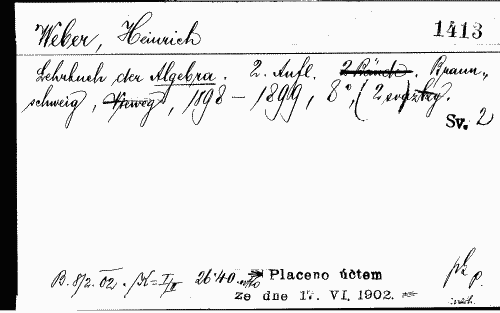 Weber, Heinrich 1413
Lehrbuch der Algebra. 2. Aufl. 2 Bände. Braun„
schweig, Vieweg, 1898–1899, 8°, (2 svazky).
Sv. 2
B. 8/2. 02. K = I/II 26·40
Placeno účtem
ze dne 17. VI. 1902.